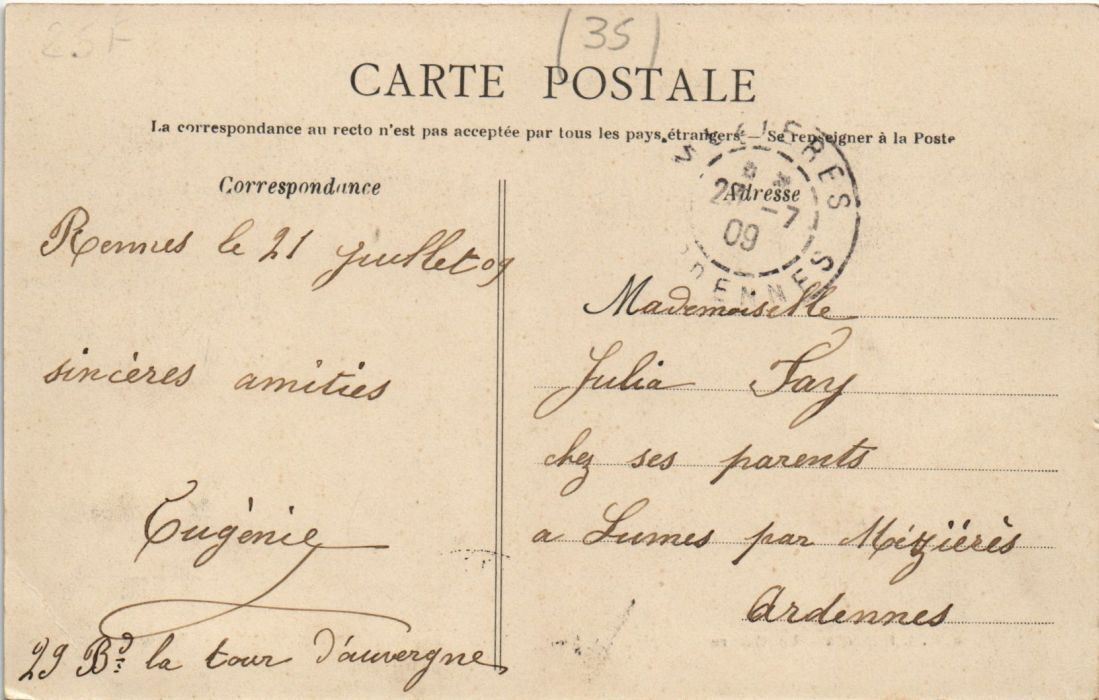 (35)
CARTE POSTALE
La correspondance au recto n'est pas acceptée par tous les pays étrangers — Se renseigner à la Poste
Correspondance
Rennes le 21 juillet 09
sincères amitiés
Eugénie
29 Bd la tour d'auvergne
MEZIERES
-7
09
ARDENNES
Adresse
Mademoiselle
Julia Fay
chez ses parents
a Lumes par Mézièrès
Ardennes